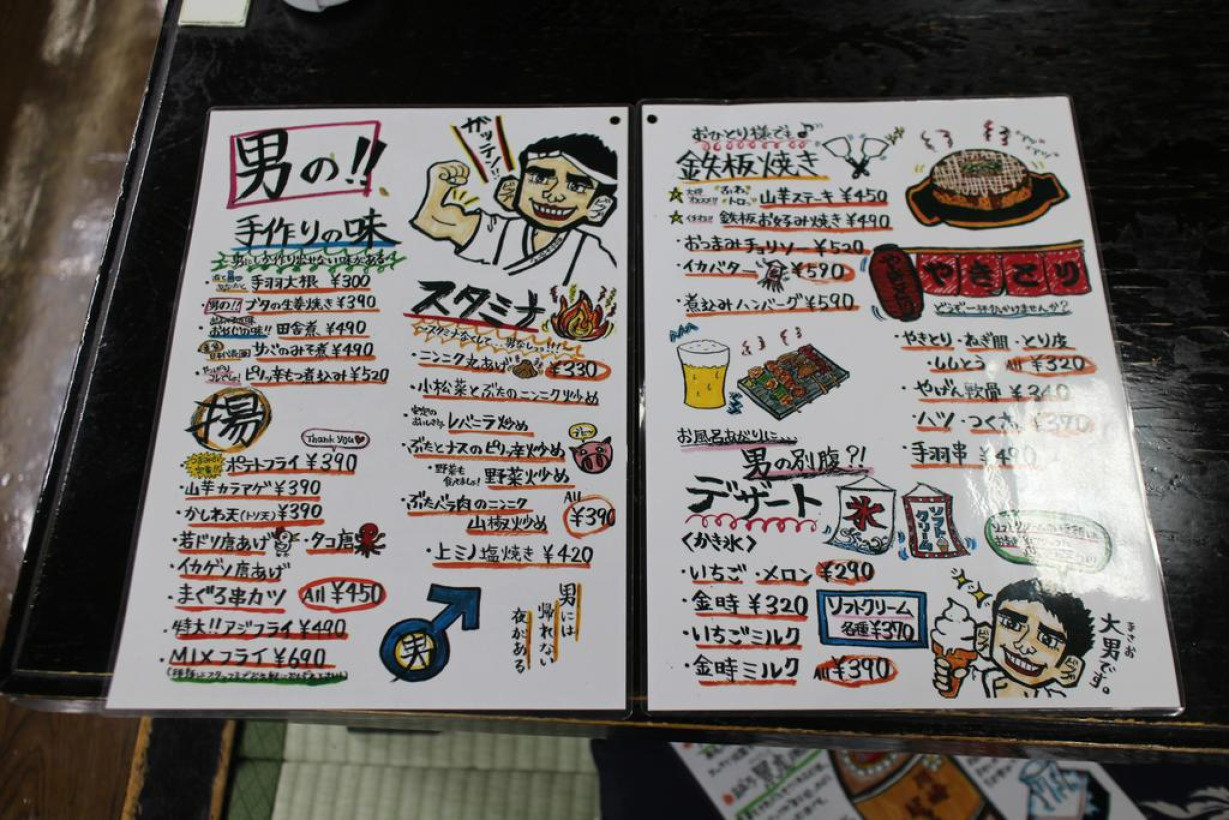 男の!!
ガッテン!!
手作りの味
男にしか作り出せない味がある
手羽大根 ¥300
男の!! ブタの生姜焼き ¥390
おやじの味!! 田舎煮 ¥490
サバのみそ煮 ¥490
ピリッ辛もつ煮込み ¥520
揚
Thank you
ポテトフライ ¥390
山芋カラアゲ ¥390
かしわ天(トリ天) ¥390
若ドリ唐あげ ・タコ唐
イカゲソ唐あげ
まぐろ串カツ All ¥450
特大!! アジフライ ¥490
MIXフライ ¥690
スタミナ
スタミナなくして…男なしっ!!!
ニンニク丸あげ ¥330
小松菜とぶたのニンニク炒め
レバニラ炒め
ぶたとナスのピリッ辛炒め
野菜も
野菜炒め
ぶたバラ肉のニンニク
山椒炒め
All ¥390
上ミノ塩焼き ¥420
男
男には
帰れない
夜がある
おひとり様でも♪
鉄板焼き
山芋ステーキ ¥450
鉄板お好み焼き ¥490
おつまみチョリソー ¥520
イカバター ¥590
煮込みハンバーグ ¥590
やきとり
やきとり・ねぎ間・とり皮
ししとう All ¥320
やげん軟骨 ¥340
ハツ・つくね ¥390
手羽串 ¥490
お風呂あがりに…
男の別腹?!
デザート
氷
ソフトクリーム
<かき氷>
・いちご・メロン ¥290
・金時 ¥320
・いちごミルク
・金時ミルク All ¥390
ソフトクリーム
各種 ¥370
大男です。
まさお